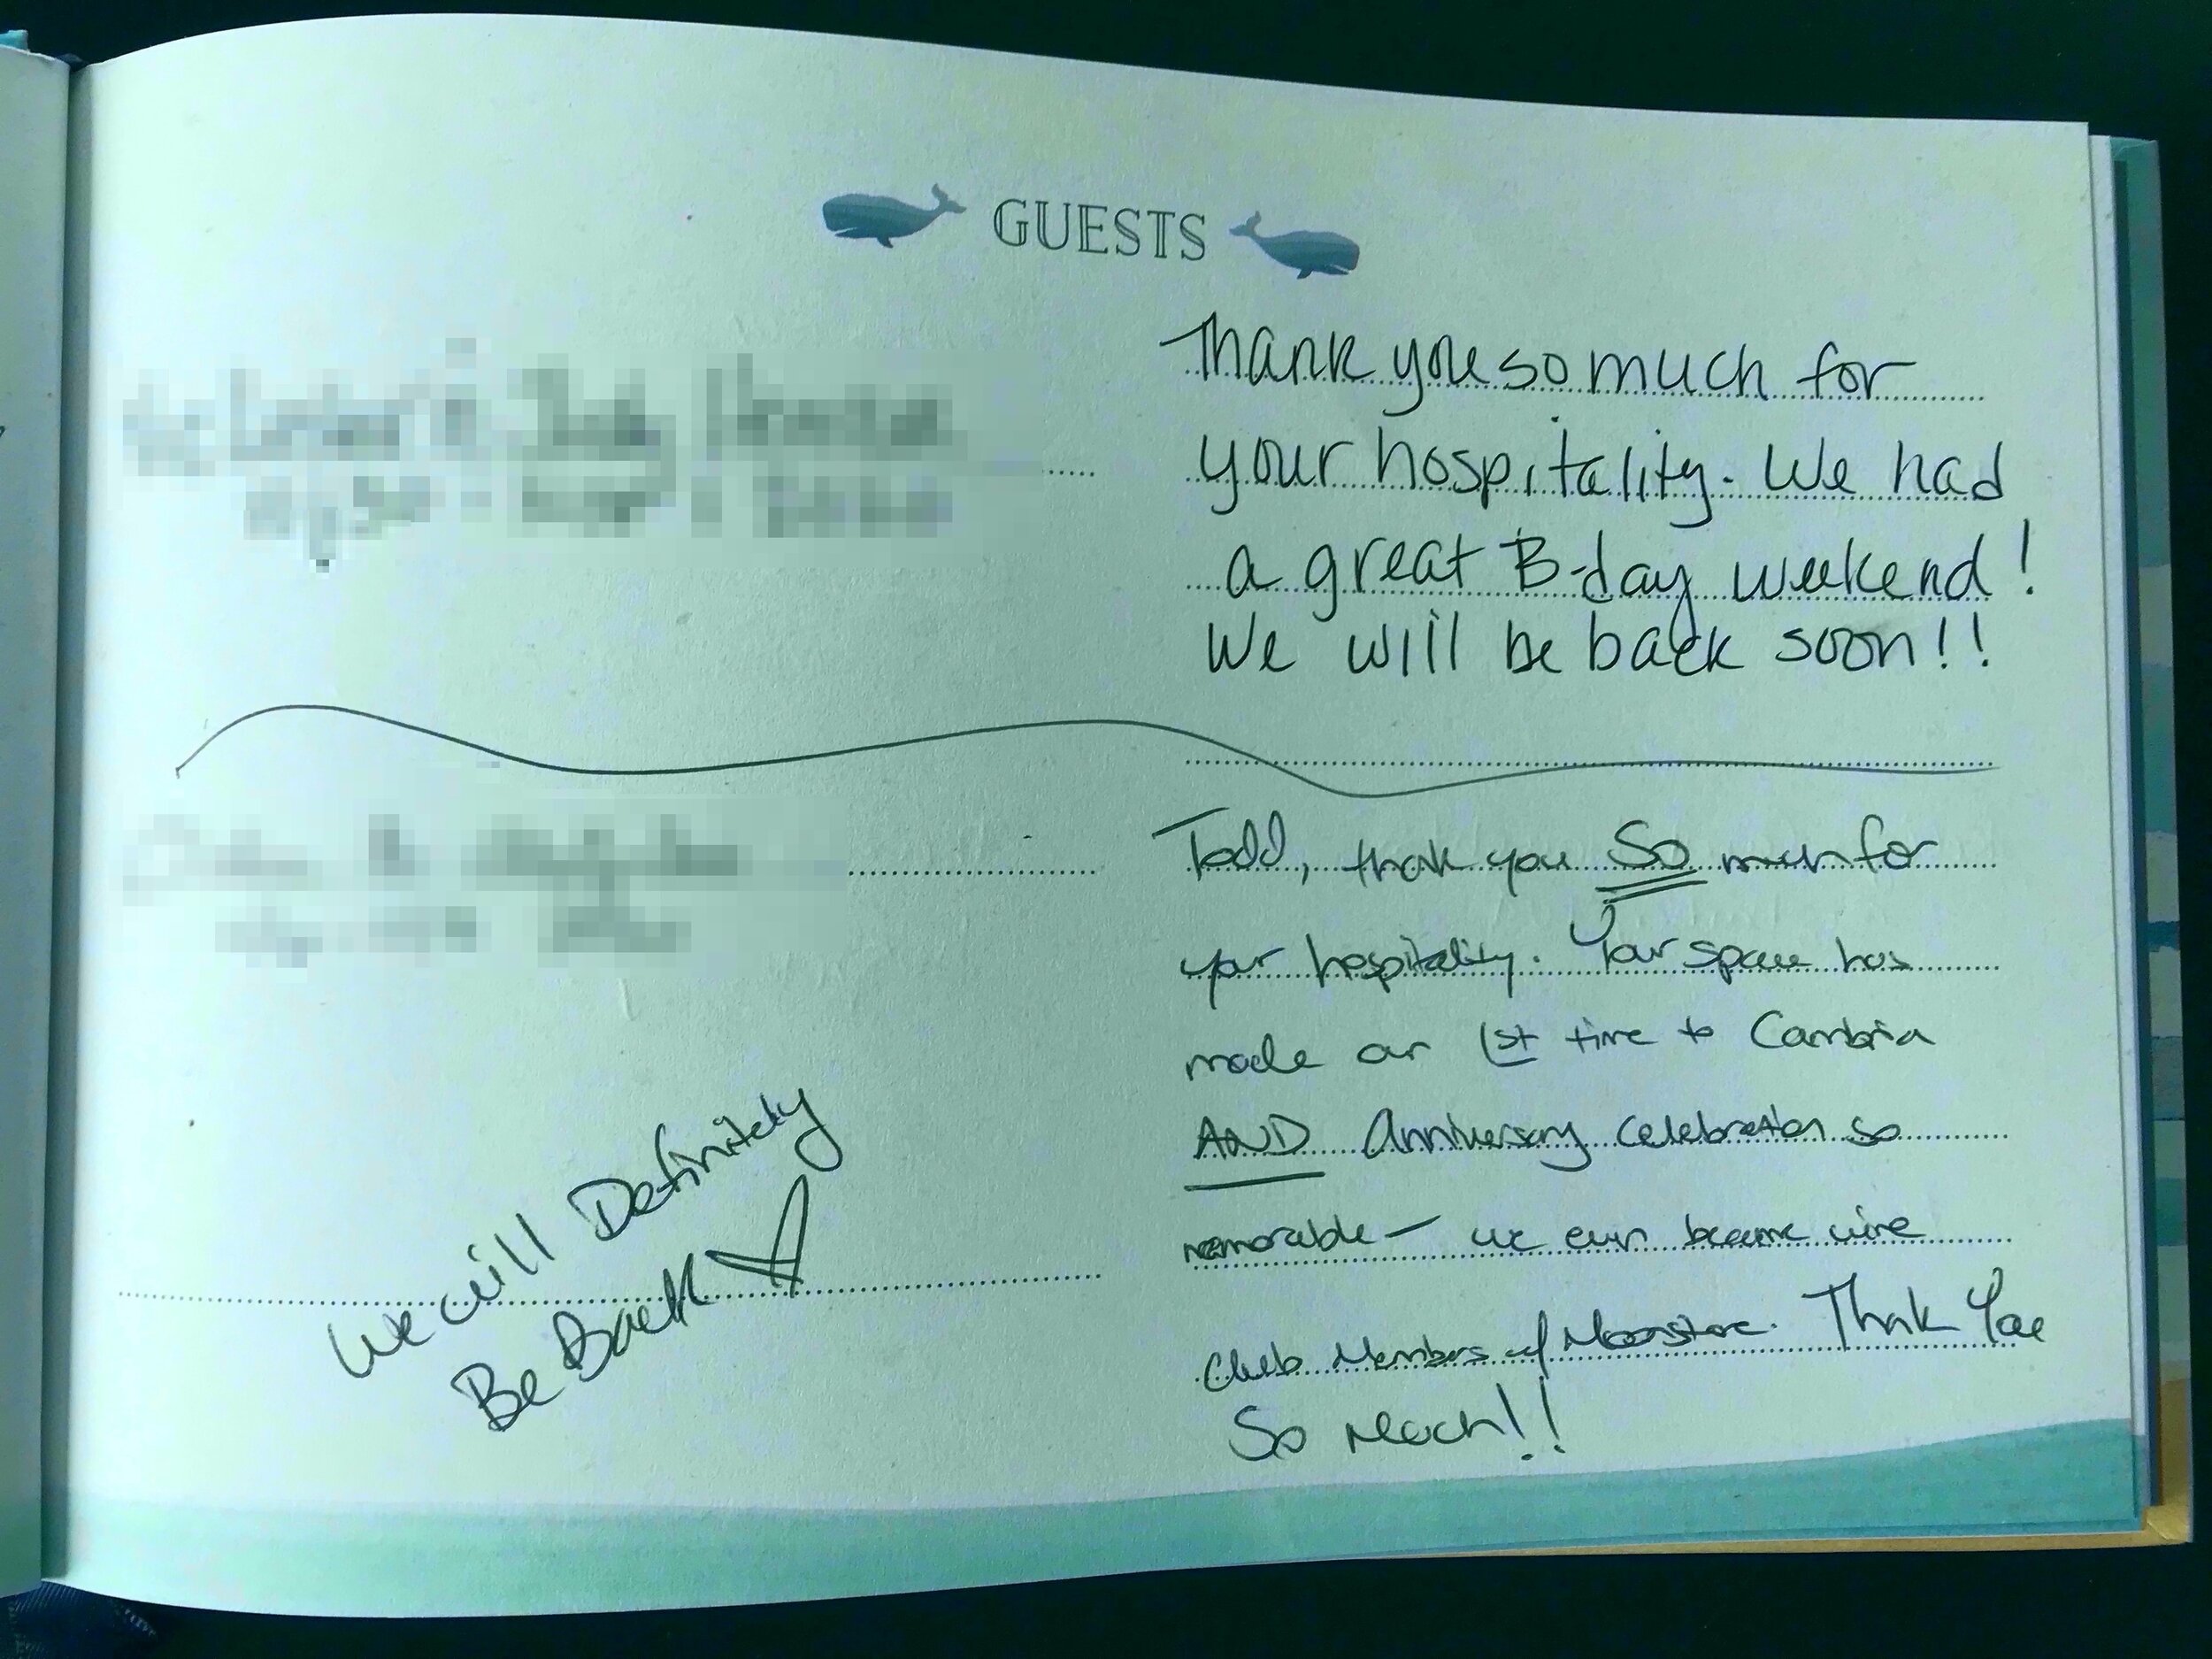 GUESTS
Thank you so much for
your hospitality. We had
a great B-day weekend!
We will be back soon!!
Todd, thank you So much for
your hospitality. Your space has
made our 1st time to Cambria
AND Anniversary celebration so
memorable - we even became wine
Club Members of Moonstone. Thank You
So Much!!
We will Definitely
Be Back